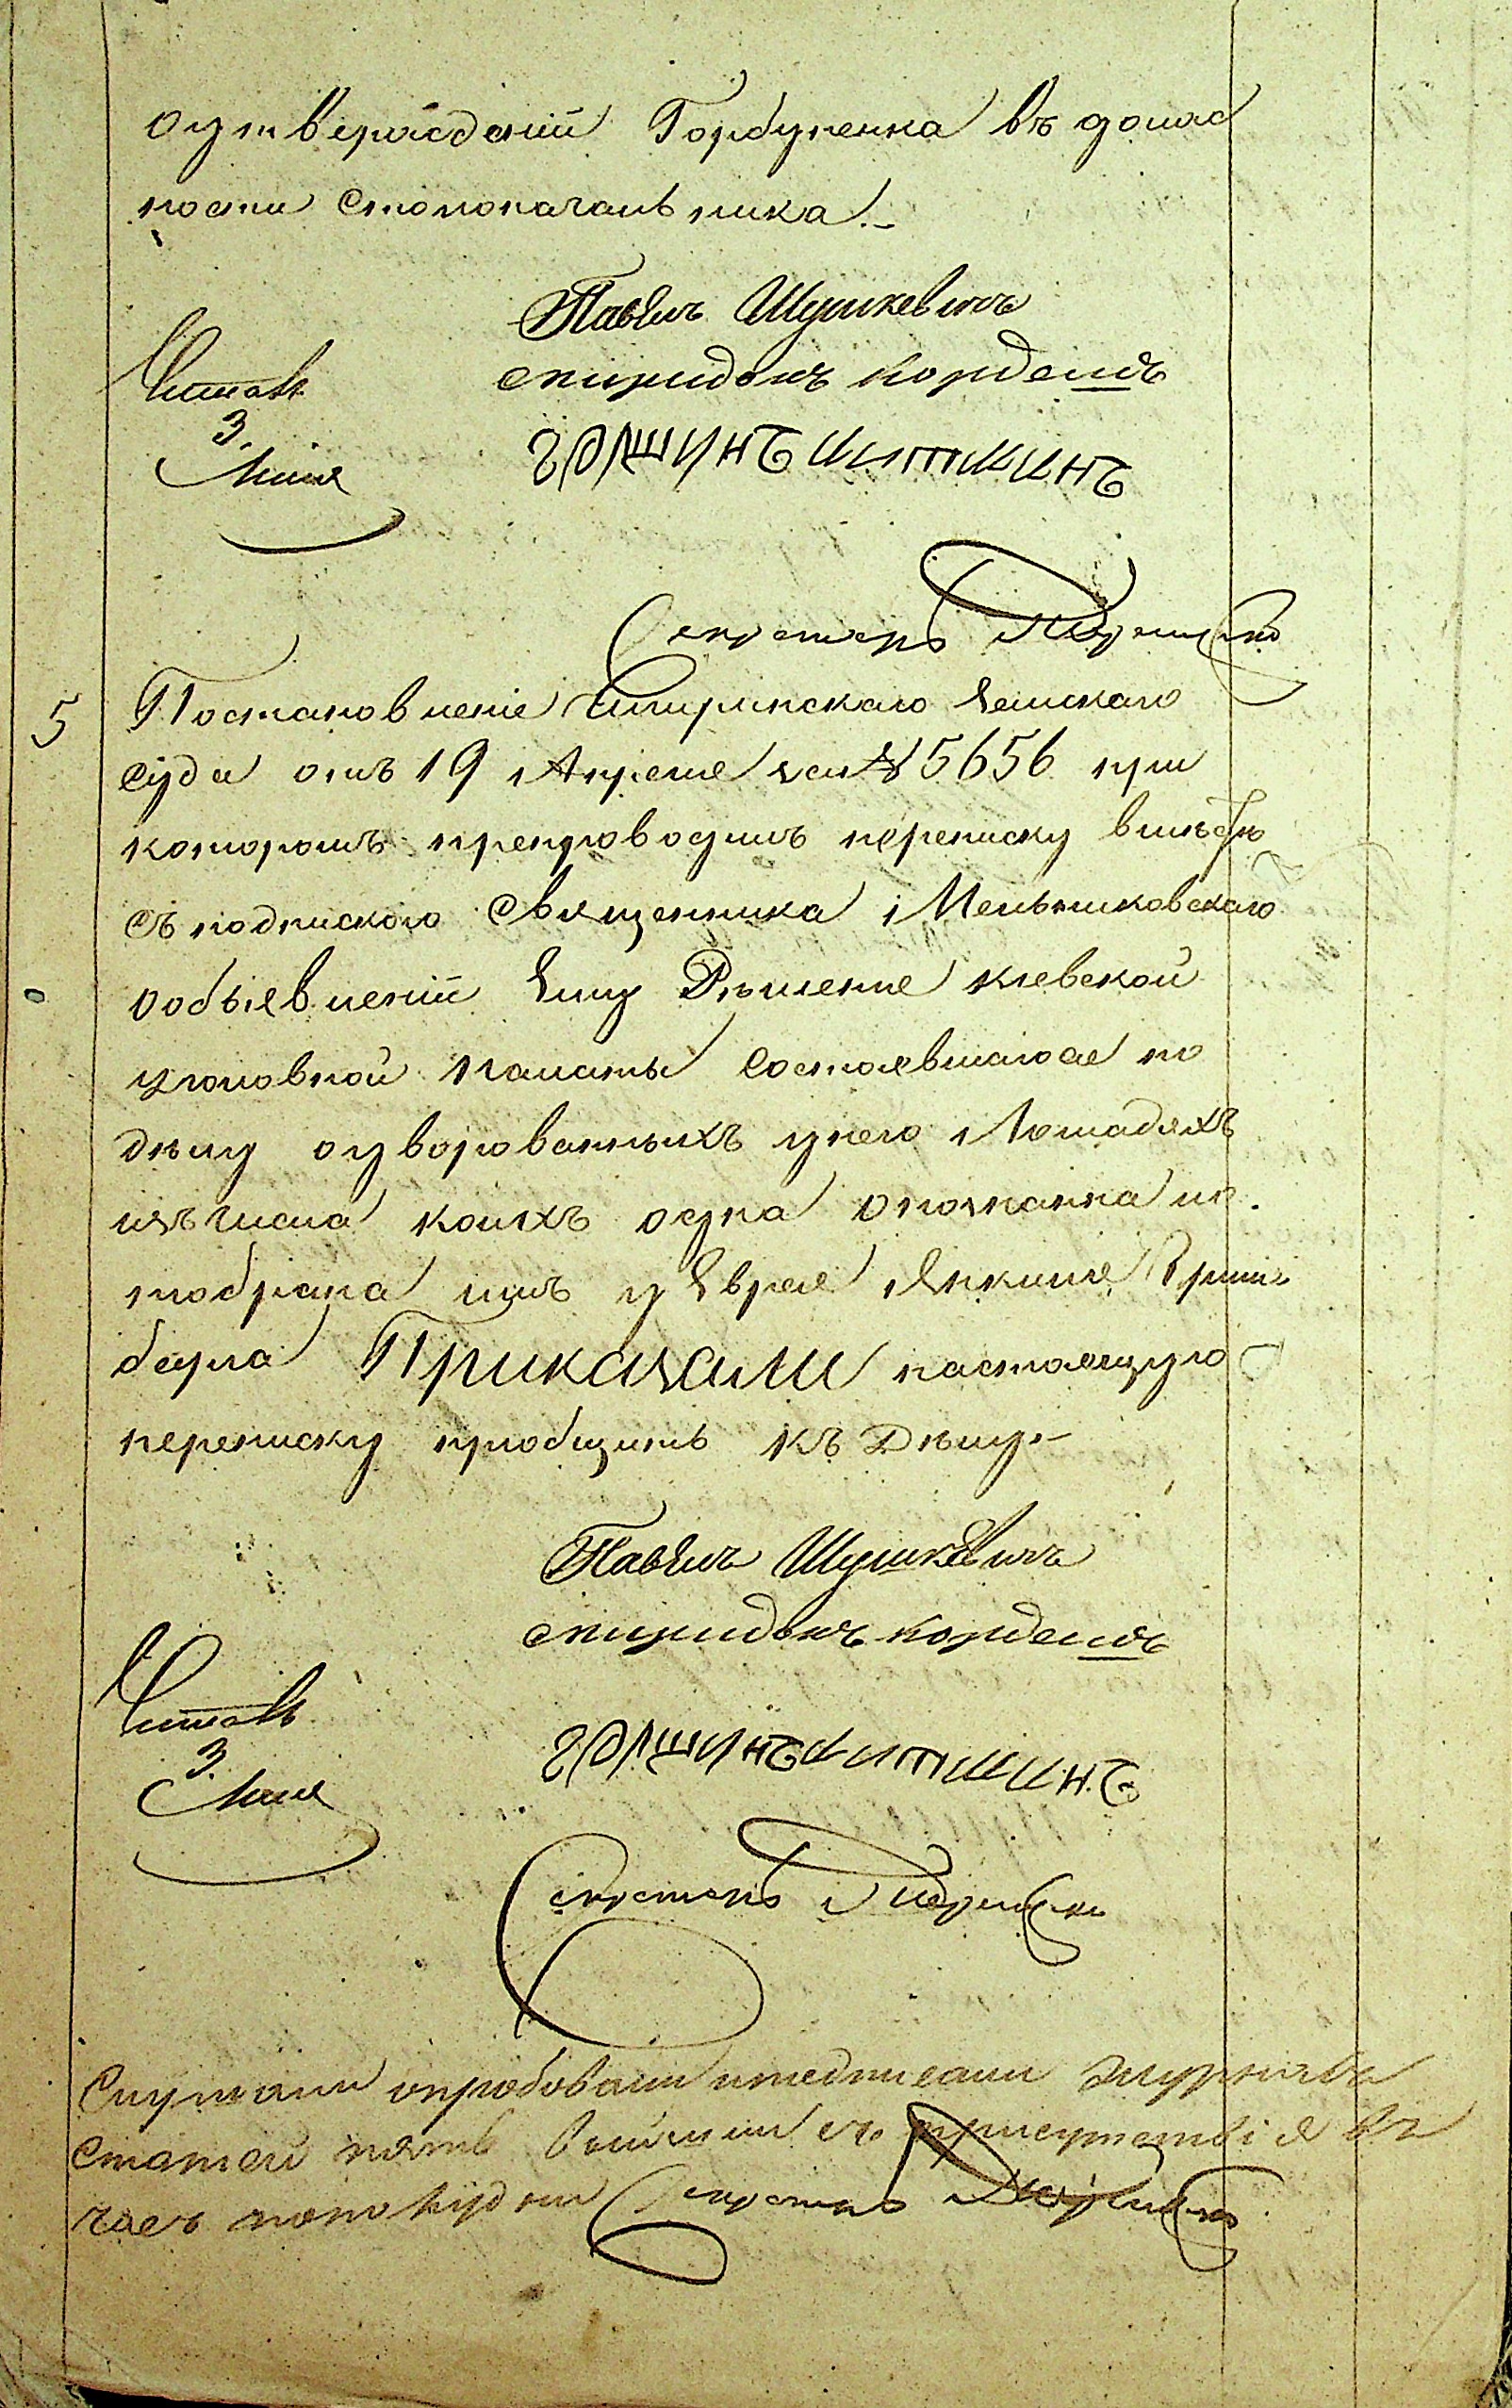 оутвержденіи Горбуненка въ долж
ности столоначальника.
Павелъ Шушкевичъ
спиридонъ кордешъ
Читалъ
3.
секретарь
5
Постановленіе Чигиринскаго Земскаго
суда отъ 19 Апреля за № 5656 при
которомъ препроводилъ переписку вмѣстѣ
съ подпискою священника Мельниковскаго
ообъявленіи Ему Рѣшение киевской
уголовной палаты состоявшагося по
дѣлу оуворованныхъ унего Лошадяхъ
изъ числа коихъ одна опознанна и
отобрана имъ у Еврея Янкиля Грин
берга Приказали настоящую
переписку приобщить къ Дѣлу.
Павелъ Шушкевичъ
спиридонъ кордешъ
Читалъ
3.
секретарь
Слушали опробовали иподписали Журналъ
статей пять вышли съ присутствія въ
часъ пополудни Секретарь